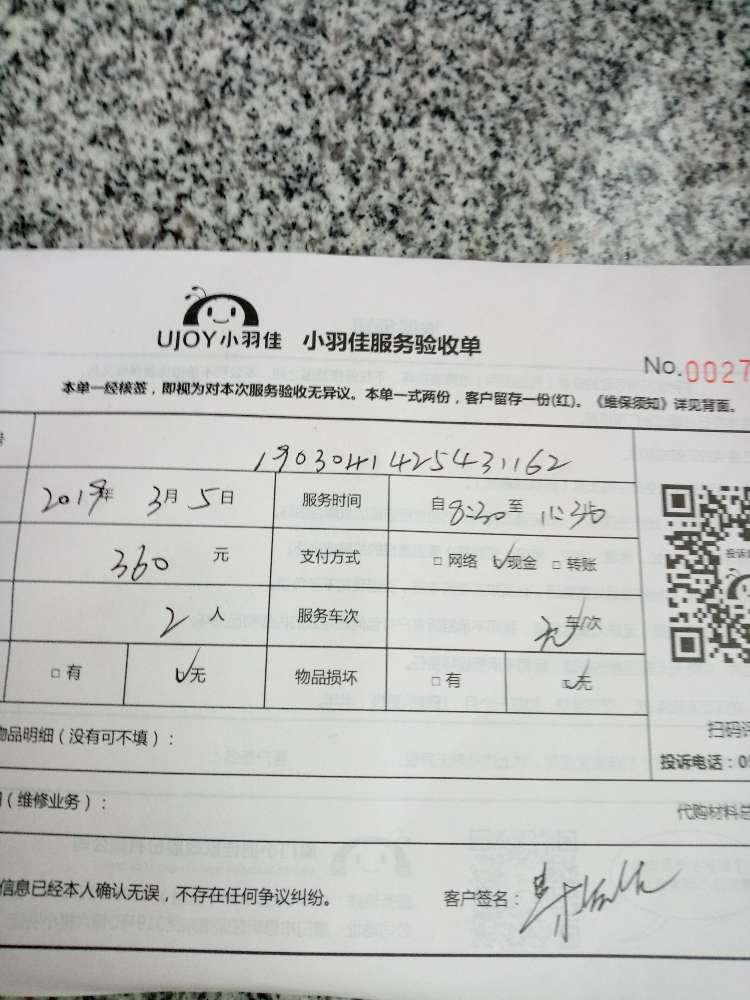 UJOY小羽佳 小羽佳服务验收单
No.0027
本单一经核签，即视为对本次服务验收无异议。本单一式两份，客户留存一份(红)。《维保须知》详见背面。
1903041425431162
2019年 3月 5日 服务时间 自8:30至11:30
360 元 支付方式 □网络 ☑现金 □转账
2 人 服务车次 车/次
□有 ☑无 物品损坏 □有 ☑无
扫码评
物品明细（没有可不填）：
投诉电话：05
（维修业务）：
代购材料总
信息已经本人确认无误，不存在任何争议纠纷。 客户签名：